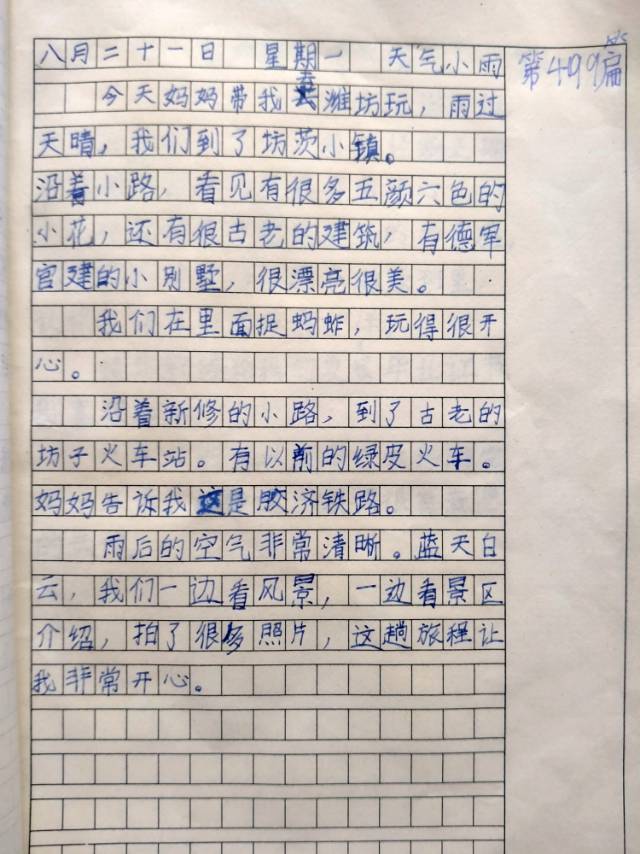 八月二十一日 星期一 天气小雨
第499篇
今天妈妈带我去潍坊玩，雨过
天晴，我们到了坊茨小镇。
沿着小路，看见有很多五颜六色的
小花，还有很古老的建筑，有德军
官建的小别墅，很漂亮很美。
我们在里面捉蚂蚱，玩得很开
心。
沿着新修的小路，到了古老的
坊子火车站。有以前的绿皮火车。
妈妈告诉我这是胶济铁路。
雨后的空气非常清晰。蓝天白
云，我们一边看风景，一边看景区
介绍，拍了很多照片，这趟旅程让
我非常开心。